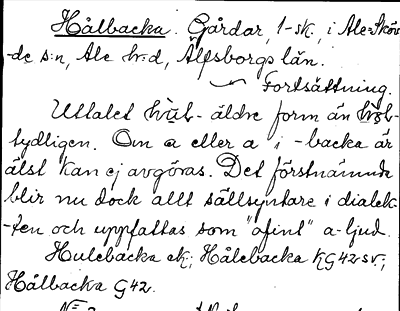 Hålbacka. Gårdar, 1-sk., i Ale-Sköv-
-de s:n, Ale h:d, Älfsborgs län.
Fortsättning.
Uttalet hùl- äldre form än hòl-
tydligen. Om a eller a i -backa är
älst kan ej avgöras. Det förstnämnda
blir nu dock allt sällsyntare i dialek-
-ten och uppfattas som "ofint" a-ljud.
Hulebacka ek; Hålebacka KG42sv;
Hålbacka G42.